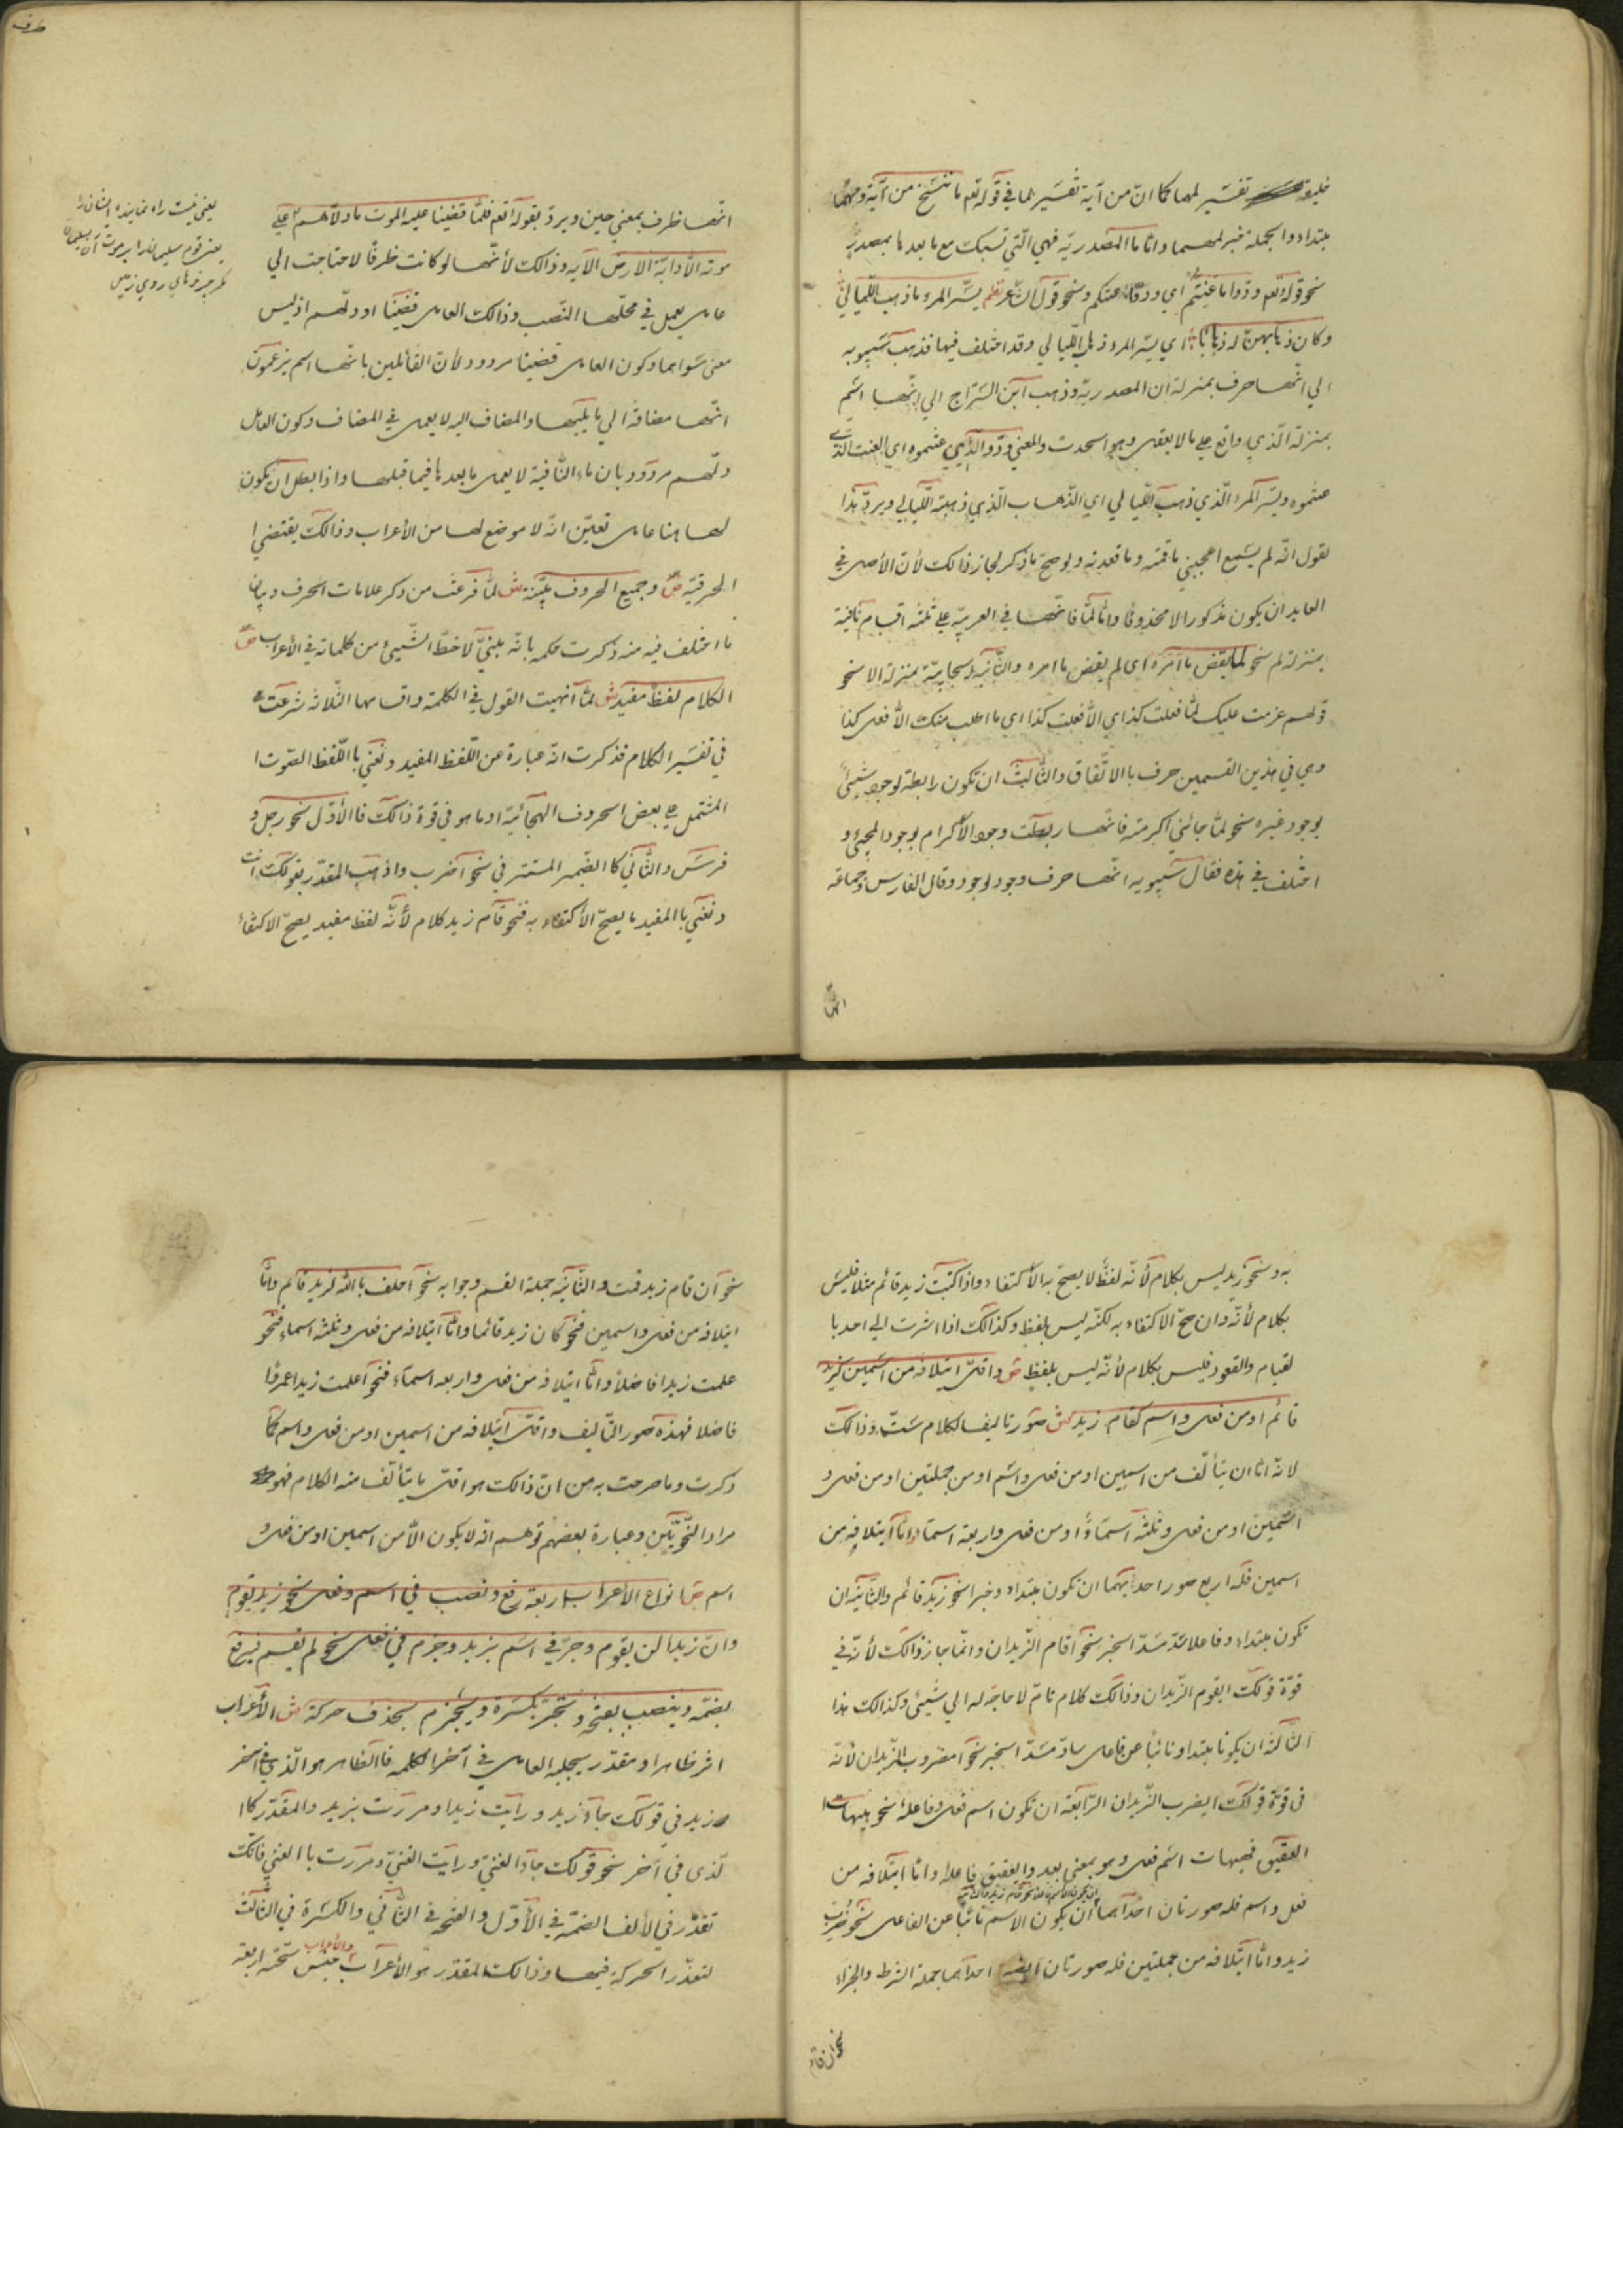 خليقة تفسير لمهما كما انّ من آية تفسير لما في قوله تعم ما ننسخ من آية ومهما
مبتداء والجملة خبر لمهما واما ما المصدريّة فهي الّتي تسبك مع ما بعدها بمصدر
نحو قوله تعم ودّوا ما عنتّم اي ودّوا عنتكم ونحو قول الشّاعر نظم يسّر المرء ما ذهب اللّيالي
وكان ذهابهنّ له ذهابا ش اي يسّر المرء ذهاب اللّيالي وقد اختلف فيها فذهب سيبويه
الي انّها حرف بمنزلة ان المصدريّة وذهب ابن السّرّاج الي انّها اسم
بمنزلة الّذي واقع علي ما لا يعقل وهو الحدث والمعني ودّوا الّذي عنتموه اي العنت الّذي
عنتموه ويسّر المرء الّذي ذهب اللّيالي اي الذّهاب الّذي ذهبته اللّيالي ويردّ هذا
لقول انّه لم يسمع اعجبني ما قمته وما قعدته ولو صحّ ما ذكر لجاز ذالك لأن الأصل في
العايد ان يكون مذكورا لا محذوفا وامّا لمّا فانّها في العربيّة علي ثلثة اقسام نافية
بمنزلة لم نحو لمّا يقض ما امره اي لم يقض ما امره والثّانية ايجابيّة بمنزلة الا نحو
قولهم عزمت عليك لمّا فعلت كذا اي الّا فعلت كذا اي ما اطلب منك الّا فعل كذا
وهي في هذين القسمين حرف باالاتّفاق والثّالث ان تكون رابطة لوجود شيئ
بوجود غيره نحو لمّا جائني اكرمته فانّها ربطت وجود الأكرام بوجود المجيئ و
اختلف في هذه فقال سيبويه انّها حرف وجود لوجود وقال الفارسي وجماعة
انّها
انّها ظرف بمعني حين ويردّ بقوله تعم فلمّا قضينا عليه الموت ما دلّهم علي
موته الّا دابّة الارض الآية وذالك لأنّها لو كانت ظرفًا لاحتاجت الي
عامل يعمل في محلّها النّصب وذالك العامل قضينا او دلّهم اذ ليس
معنى سواهما وكون العامل قضينا مردود لأن القائلين بانّها اسم يزعمون
انّها مضافة الي ما يليها والمضاف اليه لا يعمل في المضاف وكون العامل
دلّهم مردود بان ماء النّافية لا يعمل ما بعدها فيما قبلها واذا بطل ان يكون
لها هنا عامل تعيّن انّه لا موضع لها من الأعراب وذالك يقتضي ا
لحرفيّة ص وجميع الحروف مبنيّة ش لمّا فرغت من ذكر علامات الحرف وبيان
ما اختلف فيه منه ذكرت حكمه بانّه مبنيّ لا حظّ الشّيئ من كلماته في الأعراب ص
الكلام لفظ مفيد ش لمّا انهيت القول في الكلمة واقسامها الثّلاثة شرعت
في تفسير الكلام فذكرت انّه عبارة عن اللّفظ المفيد ونعني باللّفظ الصّوت ا
المشتمل علي بعض الحروف الهجائيّة او ما هو في قوة ذالك فاالأوّل نحو رجل و
فرس والثّاني كا الضّمير المستتر في نحو اضرب واذهب المقدّر بقولك انت
ونعني باالمفيد ما يصحّ الأكتفاء به فنحو قام زيد كلام لأنّه لفظ مفيد يصحّ الاكتفاء
به ونحو زيد ليس بكلام لأنّه لفظ لا يصحّ به الأكتفاء واذا كتبت زيد قائم مثلا فليس
بكلام لأنّه وان صحّ الاكتفاء به لكنّه ليس بلفظ وكذالك اذا اشرت الي احد با
لقيام والقعود فليس بكلام لأنّه ليس بلفظ ص واقلّ ائتلافه من اسمين كزيد
قائم او من فعل واسم كقام زيد ش صور تاليف الكلام ستّ وذالك
لانّه امّا ان يتألّف من اسمين او من فعل واسم او من جملتين او من فعل و
اسمين او من فعل وثلثة اسماء او من فعل واربعة اسماء وامّا ائتلافه من
اسمين فله اربع صور احديهما ان يكون مبتداء وخبر نحو زيد قائم والثّانية ان
تكون مبتداء وفاعلا سدّ مسدّ الخبر نحو اقام الزّيدان وانّما جاز ذالك لأنّه في
قوّة قولك ايقوم الزّيدان وذالك كلام تامّ لا حاجة له الي شيئ وكذالك هذا
الثّالثة ان يكونا مبتدا ونائبا عن فاعل سادّ مسدّ الخبر نحو امضروب الزّيدان لأنّه
في قوّة قولك ايضرب الزّيدان الرّابعة ان تكون اسم فعل وفاعله نحو هيهات
العقيق فهيهات اسم فعل وهو بمعني بعد والعقيق فاعله وامّا ائتلافه من
فعل واسم فله صورتان احدهما ان يكون الاسم نائبا عن الفاعل نحو ضرب
زيد وامّا ائتلافه من جملتين فله صورتان ايضا احداهما جملة الشرط والجزاء
نحو ان قام
نحو ان قام زيد قمت والثّانية جملة القسم وجوابه نحو احلف باالله لزيد قائم وامّا
ائتلافه من فعل واسمين فنحو كان زيد قائما وامّا ائتلافه من فعل وثلثة اسماء فنحو
علمت زيدا فاضلا وامّا ائتلافه من فعل واربعة اسماء فنحو اعلمت زيدا عمروا
فاضلا فهذه صور التّاليف واقلّ ائتلافه من اسمين او من فعل واسم كما
ذكرت وما صرحت به من انّ ذالك هو اقلّ ما يتألّف منه الكلام فهو
مراد النّحويّين وعبارة بعضهم توهم انّه لا يكون الّا من اسمين او من فعل و
اسم ص انواع الأعراب اربعة رفع ونصب في اسم وفعل نحو زيد يقوم
وانّ زيدا لن يقوم وجرّ في اسم بزيد وجزم في فعل نحو لم يقم فيرفع
بضمّة وينصب بفتحة ويجرّ بكسرة ويجزم بحذف حركة ش الأعراب
اثر ظاهر او مقدّر يجلبه العامل في آخر الكلمة فاالظاهر هو الّذي في آخر
زيد في قولك جاء زيد ورايت زيدا ومررت بزيد والمقدّر كاا
لّذي في آخر نحو قولك جاء الفتي ورايت الفتي ومررت باالفتي فانّك
تقدّر في لألف الضمّة في الأوّل والفتحة في الثّاني والكسرة في الثّالث
لتعذّر الحركة فيها وذالك المقدّر هو الأعراب جنس تحته اربعة